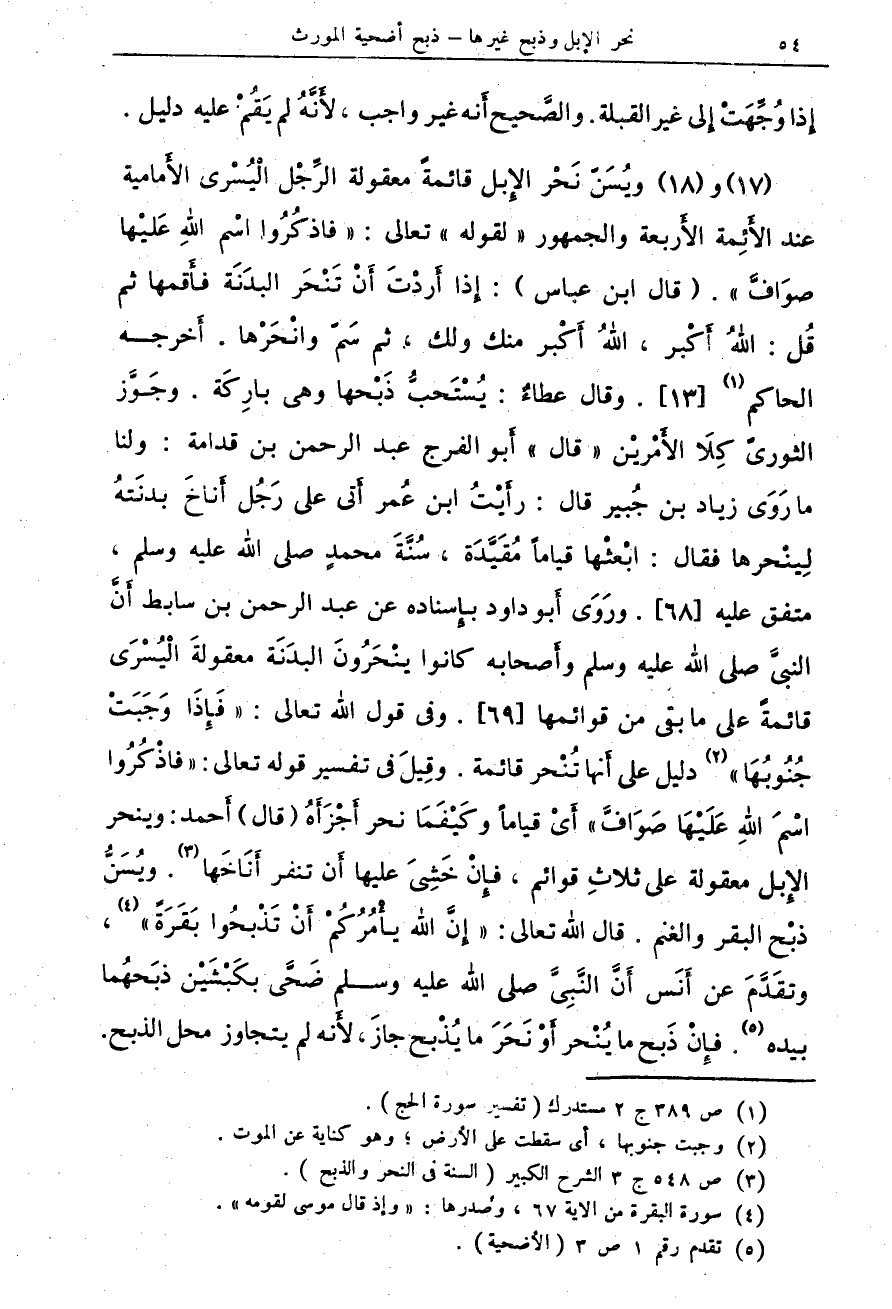 ٥٤ نحر الإبل وذبح غيرها – ذبح أضحية المورث
إذا وُجِّهَتْ إلى غير القبلة. والصَّحيح أنه غير واجب ، لأَنَّهُ لم يَقُمْ عليه دليل .
(١٧) و (١٨) ويُسَنّ نَحْر الإبل قائمةً معقولة الرِّجْل الْيُسْرى الأَمامية
عند الأَئِمة الأَربعة والجمهور « لقوله » تعالى : « فاذكُرُوا اسْم اللهِ عَلَيْها
صوَافَّ » . ( قال ابن عباس ) : إذا أَردْتَ أَنْ تَنْحَر البدَنَة فأَقمها ثم
قُل : اللهُ أَكْبر ، اللهُ أَكْبر منك ولك ، ثم سَمّ وانْحَرْها . أَخرجـه
الحاكم (١) [١٣] . وقال عطاءُ : يُسْتَحبُّ ذَبْحها وهى بارِكَة . وجَوَّز
الثورىّ كِلَا الأَمْريْن « قال » أَبو الفرج عبد الرحمن بن قدامة : ولنا
ما رَوَى زياد بن جُبير قال : رأَيْتُ ابن عُمر أَتى على رَجُل أَناخَ بدنَتهُ
لِينْحرها فقال : ابْعثْها قياماً مُقَيَّدَة ، سُنَّةَ محمدٍ صلى الله عليه وسلم ،
متفق عليه [٦٨] . ورَوَى أَبو داود بإِسناده عن عبد الرحمن بن سابط أَنَّ
النبىَّ صلى الله عليه وسلم وأَصحابه كانوا ينْحَرُونَ البدَنَة معقولةَ الْيُسْرَى
قائمةً على ما بقى من قوائمها [٦٩] . وفى قول الله تعالى : « فَإِذَا وَجَبَتْ
جُنُوبُهَا » (٢) دليل على أَنها تُنْحر قائمة . وقِيلَ فى تفسير قوله تعالى : « فاذْكُرُوا
اسْمَ اللهِ عَلَيْهَا صَوَافَّ » أَىْ قياماً وكَيْفَمَا نحر أَجْزَأَهُ ( قال ) أَحمد : وينحر
الإبل معقولة على ثلاثِ قوائم ، فإِنْ خَشِىَ عليها أَن تنفر أَنَاخَها (٣) . ويُسَنُّ
ذبْح البقر والغنم . قال الله تعالى : « إنَّ الله يأْمُرُكُمْ أَنْ تَذْبحُوا بَقَرَةً » (٤) ،
وتقدَّمَ عن أَنَس أَنَّ النَّبِىَّ صلى الله عليه وسـلم ضَحَّى بكَبْشَيْن ذبَحهُما
بيده (٥) . فإِنْ ذَبح ما يُنْحر أَوْ نَحَرَ ما يُذْبح جازَ ، لأَنه لم يتجاوز محل الذبح.
(١) ص ٣٨٩ ج ٢ مستدرك ( تفسير سورة الحج ) .
(٢) وجبت جنوبها ، أى سقطت على الأرض ؛ وهو كناية عن الموت .
(٣) ص ٥٤٨ ج ٣ الشرح الكبير ( السنة فى النحر والذبح ) .
(٤) سورة البقرة من الآية ٦٧ ، وصدرها : « وإذ قال موسى لقومه » .
(٥) تقدم رقم ١ ص ٣ ( الأضحية ) .